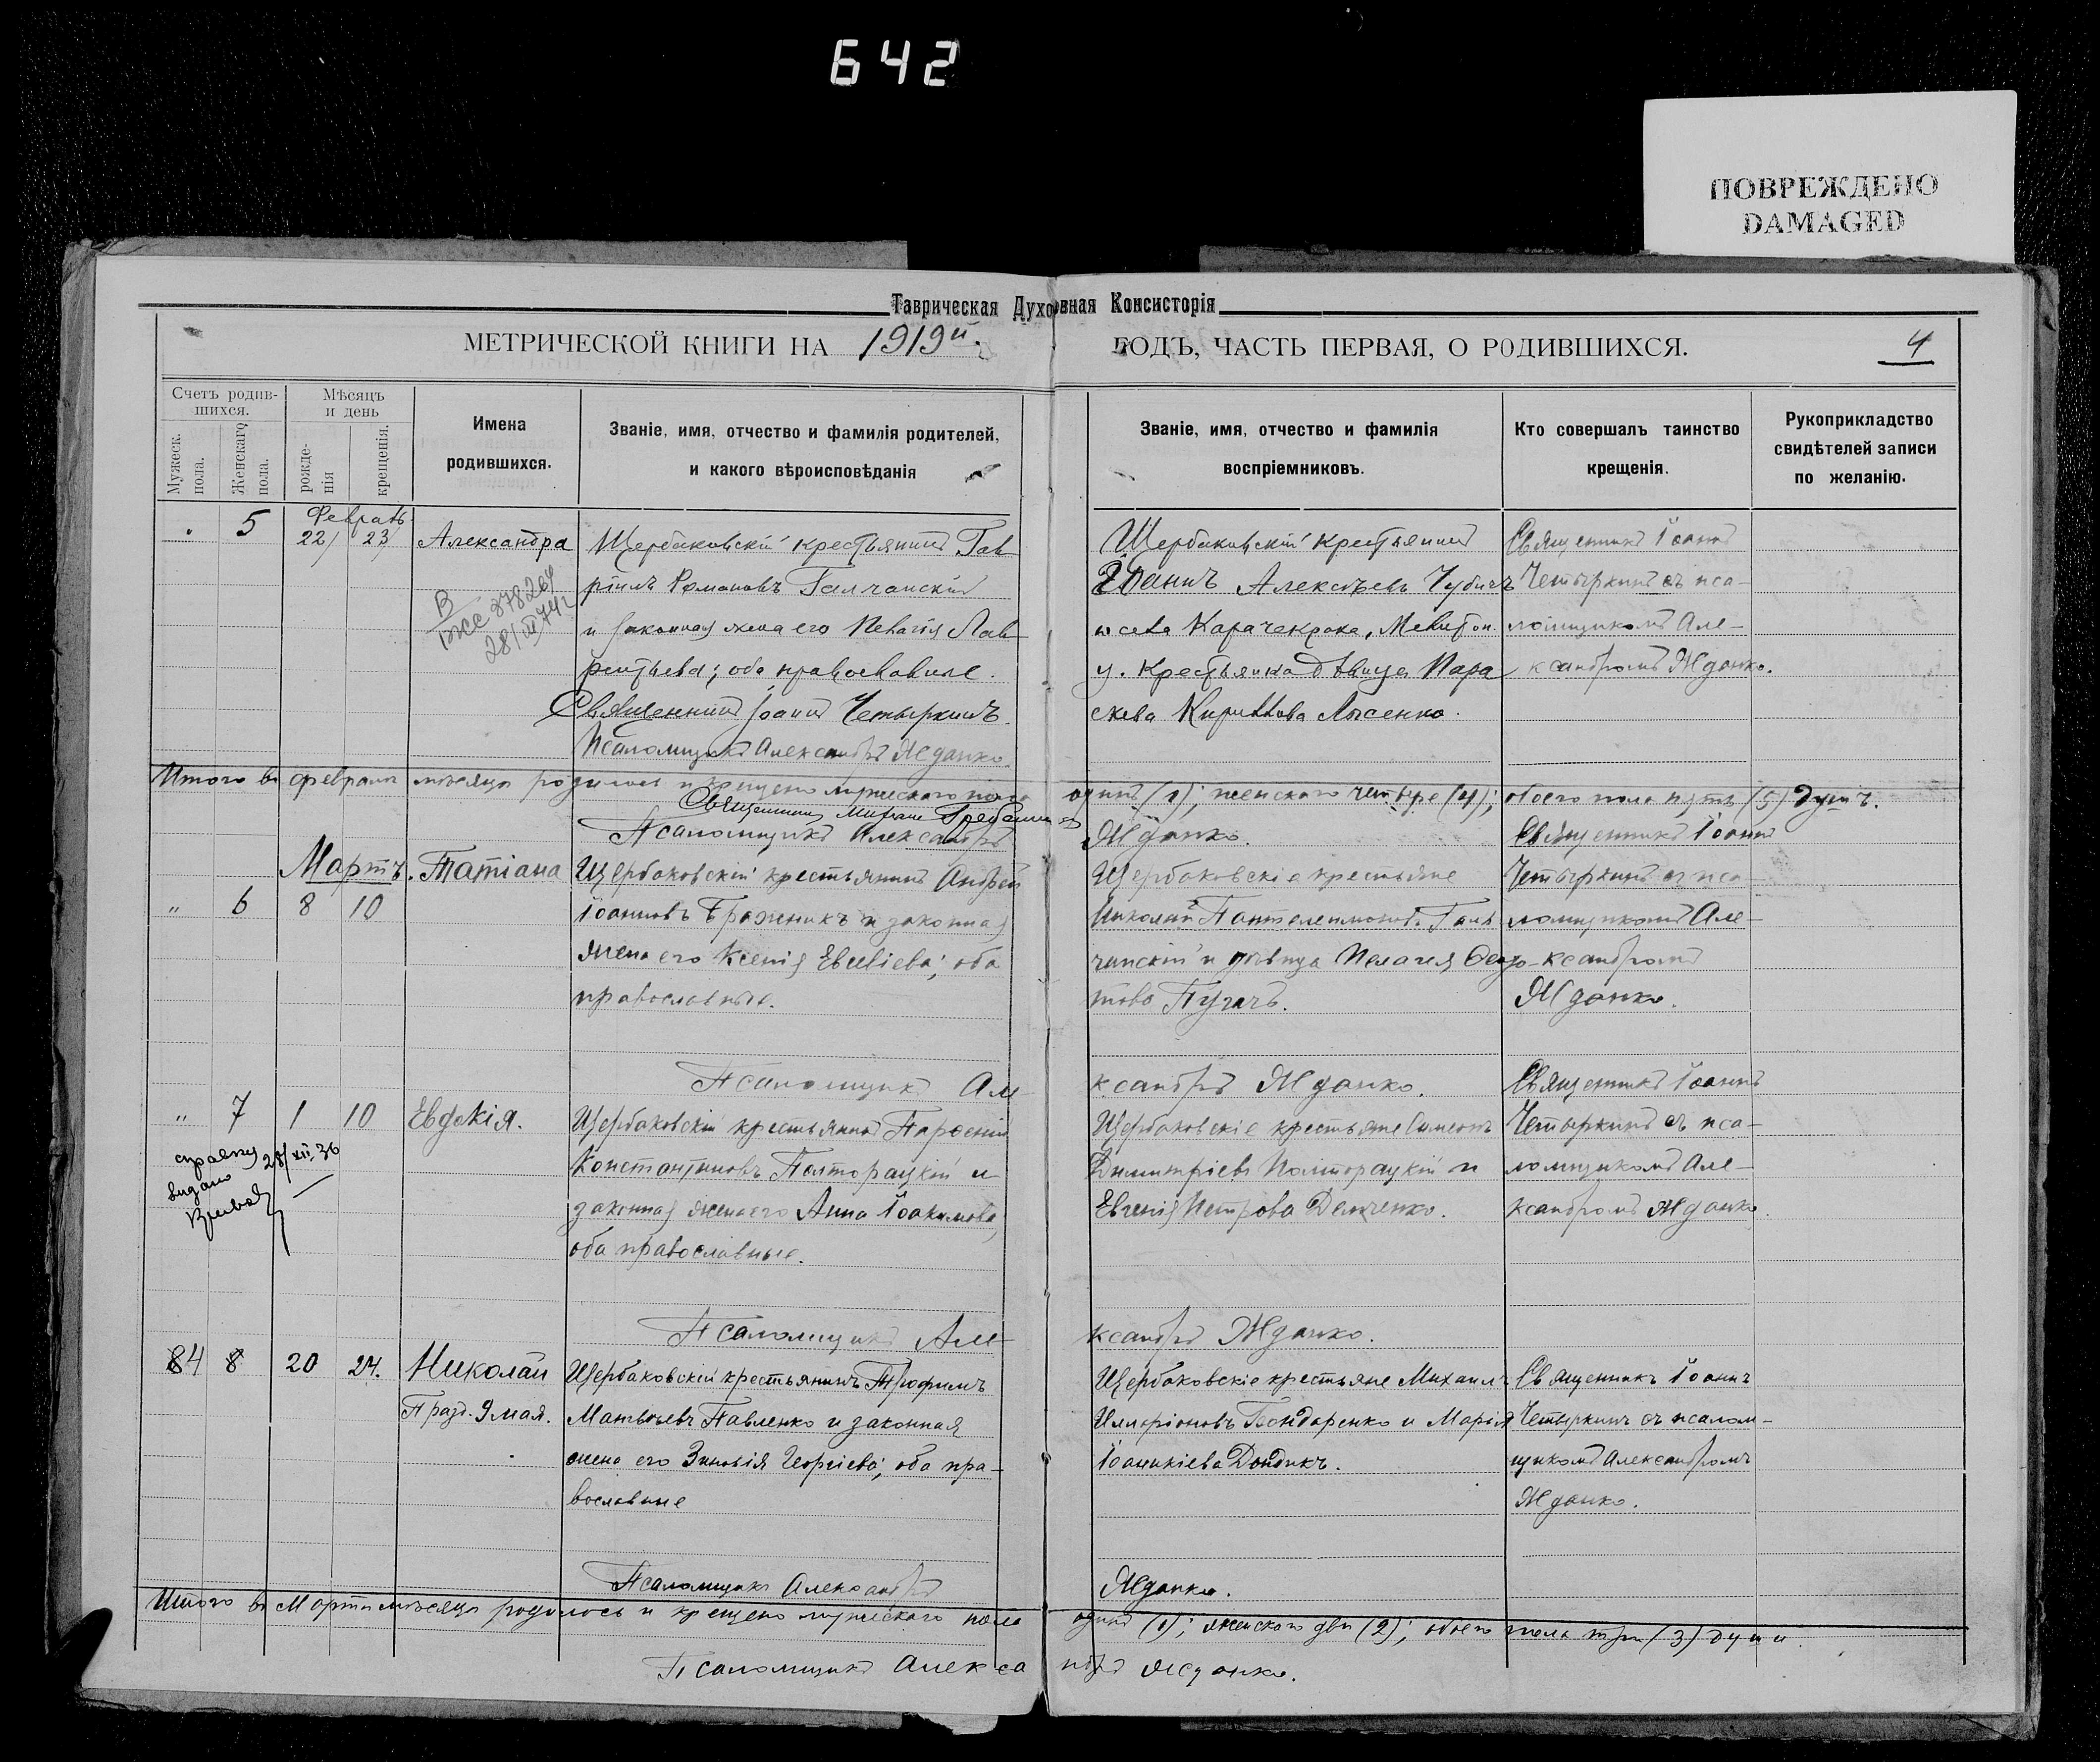 642
ПОВРЕЖДЕНО
DAMAGED
Таврическая Духовная Консисторія
МЕТРИЧЕСКОЙ КНИГИ НА 1919й ГОДЪ, ЧАСТЬ ПЕРВАЯ, О РОДИВШИХСЯ.
4
Счетъ родив-
шихся.
Мужеск.
пола.
Женскаго
пола.
Мѣсяцъ
и день
рожде-
нія
крещенія.
Имена
родившихся.
Званіе, имя, отчество и фамилія родителей,
и какого вѣроисповѣданія
Званіе, имя, отчество и фамилія
воспріемниковъ.
Кто совершалъ таинство
крещенія.
Рукоприкладство
свидѣтелей записи
по желанію.
" 5
Февраль
22/ 23/
Александра
28/III 74г
Щербаковскій крестьянинъ Гав
ріилъ Романовъ Галчанскій
и законная жена его Лав
рентьева; оба православные.
Священникъ Іоаннъ Четыркинъ.
Псаломщикъ Александръ Жданко.
Щербаковскій крестьянинъ
Алексѣевъ
села у. Крестьянка дѣвица Пара
скева Кириллова Лысенко.
Священникъ Іоаннъ
Четыркинъ съ пса-
ломщикомъ Але-
ксандромъ Жданко.
Итого въ февралѣ мѣсяцѣ родилось и крещено мужескаго пола одинъ (1); женскаго четыре (4); обоего пола пять (5) душъ.
Священникъ
Псаломщикъ Александръ Жданко.
Мартъ.
" 6 8 10
Татіана
Щербаковскій крестьянинъ Андрей
Іоанновъ Бражникъ и законная
жена его Ксенія Евсевіева; оба
православные.
Щербаковскіе крестьяне
Николай Пантелеимоновъ Галь
чанскій и дѣвица Пелагія Ѳедо-
това Пугачъ.
Священникъ Іоаннъ
Четыркинъ съ пса-
ломщикомъ Але-
ксандромъ
Жданко.
Псаломщикъ Александръ Жданко.
" 7 1 10
Евдокія.
справку
видано
28/XII.36
Щербаковскій крестьянинъ Парѳеній
Константиновъ Полторацкій и
законная жена его Анна Іоакимова,
оба православные.
Щербаковскіе крестьяне Симеонъ
Димитріевъ Полторацкій и
Евгенія Петрова Демченко.
Священникъ Іоаннъ
Четыркинъ съ пса-
ломщикомъ Але-
ксандромъ Жданко.
Псаломщикъ Александръ Жданко.
4 8 20 24.
Николай
Празд. 9 мая.
Щербаковскій крестьянинъ Трофимъ
Матвѣевъ Павленко и законная
жена его Зиновія Георгіева; оба пра-
вославные
Щербаковскіе крестьяне Михаилъ
Иларіоновъ Бондаренко и Марія
Іоанникіева Дондикъ.
Священникъ Іоаннъ
Четыркинъ съ псалом-
щикомъ Александромъ
Жданко.
Псаломщикъ Александръ Жданко.
Итого въ Мартѣ мѣсяцѣ родилось и крещено мужескаго пола одинъ (1); женскаго два (2); обоего пола три (3) души.
Псаломщикъ Александръ Жданко.